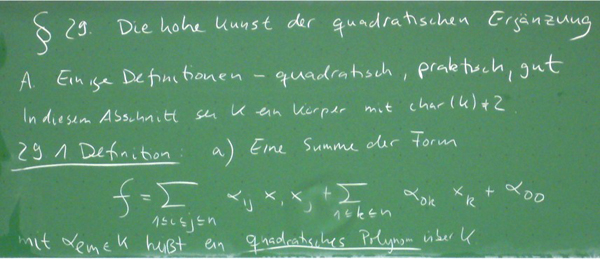 § 29. Die hohe Kunst der quadratischen Ergänzung
A. Einige Definitionen – quadratisch, praktisch, gut
In diesem Abschnitt sei K ein Körper mit char(K) ≠ 2.
29.1 Definition: a) Eine Summe der Form
f = ∑_{1≤i≤j≤n} α_{ij} x_i x_j + ∑_{1≤k≤n} α_{0k} x_k + α_{00}
mit α_{em} ∈ K heißt ein quadratisches Polynom über K